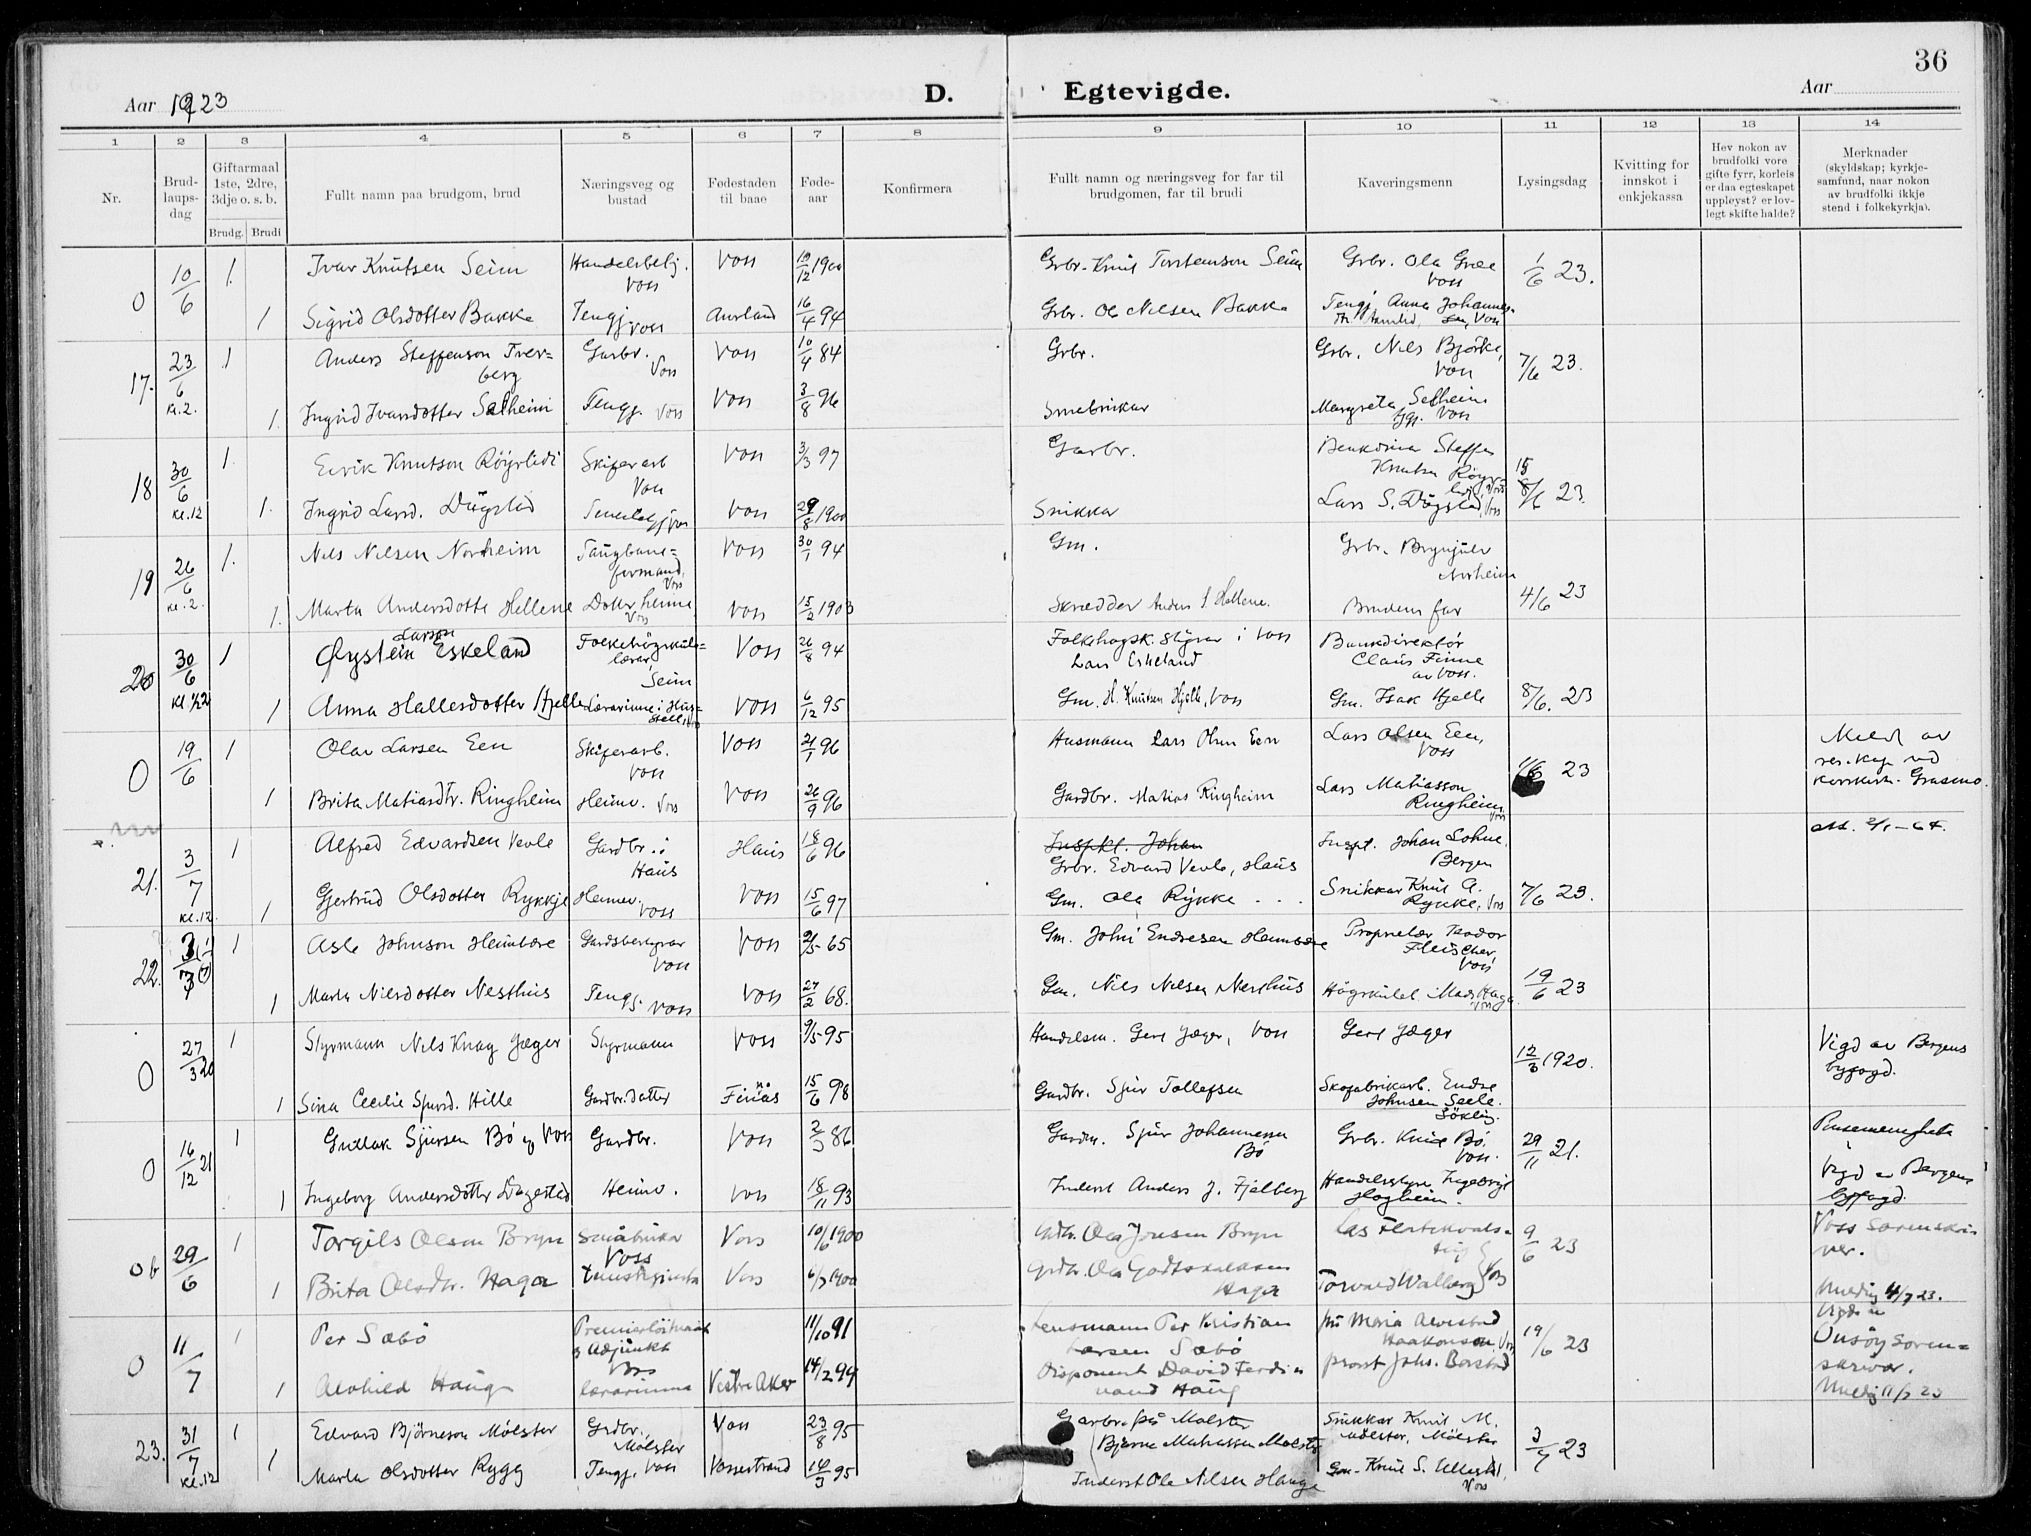 36
Aar 1923
D.
Egtevigde.
Aar
1 2 3 4 5 6 7 8 9 10 11 12 13 14
Nr.
Brud-
laups-
dag
Giftarmaal
1ste, 2dre,
3dje o. s. b.
Brudg. Brudi
Fullt namn paa brudgom, brud
Næringsveg og
bustad
Fødestaden
til baae
Føde-
aar
Konfirmera
Fullt namn og næringsveg for far til
brudgomen, far til brudi
Kaveringsmenn
Lysingsdag
Kvitting for
innskot i
enkjekassa
Hev nokon av
brudfolki vore
gifte fyrr, korleis
er daa egteskapet
uppløyst? er lov-
legt skifte halde?
Merknader
(skyldskap; kyrkje-
samfund, naar nokon
av brudfolki ikkje
stend i folkekyrkja).
0 10/6 1. Ivar Knutsen Seim Handelsbetj. Voss Voss 10/12 1900 Grbr. Knut Torstenson Seim Grbr. Ola Græe Voss 1/6 23.
1 Sigrid Olsdotter Bakke Tengj. Voss Aurland 16/4 94 Grbr. Ole Nilsen Bakke Tengj. Anna Johannes-
17. 23/6 kl. 2. 1 Anders Steffenson Tver-
berg Garbr. Voss Voss 10/4 84 Grbr. Grbr. Nils Björke, Voss 7/6 23.
1. Ingrid Ivarsdotter Selheim Tengj. Voss Voss 3/8 96 Smebrukar Margreta Selheim
Voss
18 30/6 kl. 12 1. Eirik Knutson Röyrlidi Skiferarb Voss Voss 3/3 97 Garbr. Steffen
Knutsen
1. Ingrid Larsd. Dügstad Voss Voss 29/8 1900 Snikkar Lars S. Dügstad, Voss 15/6 23.
19 26/6 kl. 2. 1. Nils Nilsen Norheim Taugbane-
formand, Voss Voss 30/1 94 Gm. Grbr. Brynjulv
Norheim
1. Marta Andersdotte Hellene Dotter heime Voss Voss 15/2 1903 Skrædder Anders Hellene. Brudens far 4/6 23
20 30/6 kl. 1/2 2 1 Øystein Larson Eskeland Folkehögskule-
lærar Seim Voss 26/8 94 Folkehøgsk. styrar i Voss
Lars Eskeland Bankdirektör
Claus Finne
av Voss.
1 Anna Hallesdotter Hjelle Lærarinne i Hus-
stell, Voss 6/12 95 Gm. H. Knutsen Hjelle, Voss Gm. Isak Hjelle 8/6. 23
0 19/6 1 Olav Larsen Een Skiferarb. Voss Voss 21/1 96 Husmann Lars Olsen Een Lars Olsen Een, Voss 23 Meld av
res. kap. ved
1 Brita Matiasdtr. Ringheim Heimv. Voss Voss 26/9 96 Gardbr. Matias Ringheim Lars Matiasson
Ringheim Voss
21. 3/7 kl. 12. 1 Alfred Edvardsen Vevle Gardbr. i
Haus Haus 18/6 96 Inspkt. Johan
Grbr. Edvard Vevle, Haus Inspt. Johan Lohne.
Bergen att. 2/1 - 64.
1 Gjertrud Olsdotter Rykkje Heimv. Voss Voss 15/6 97 Gm. Ola Rykke Snikkar Knut A.
Rykke, Voss 7/6 23.
22. 1 Asle Johnson Heimbære Gardsbestyrar
Voss Voss 9/5 - 65 Gm. John Endresen Heimbære Proprietær Teodor
Fleischer,
Voss
1 Marta Nilsdotter Nesthus Tengj. Voss Voss 27/2 68. Gm. Nils Nilsen Nesthus Högskulel. Mads Haga Voss 19/6 23
0 27/3 20 1 Styrmann Nils Knag Jæger Styrmann Voss 9/5 - 95 Handelsm. Gert Jæger, Voss Gert Jæger 12/3 1920. Vigd av Bergens
byfogd.
1 Sina Cecilie Sjursd. Hille Gardbr. datter Finås 15/6 98 Gardbr. Sjur Tollefsen Skofabrikarb. Endre
Johnsen Seele.
0 16/12 21 1 Gullak Sjursen Bö Voss Gardbr. Voss 2/3 86 Gardm. Sjur Johannessen
Bö Grbr. Knut Bö,
Voss. 29/11 21. Pinsemenigheta
Vigd av Bergens
byfogd.
1 Ingeborg Andersdotter Dagestad Heimv. Voss 18/11 93 Inderst Anders J. Fjelberg Ingebrigt
29/6 1 Torgils Olsen Bryn Småbrukar
Voss Voss 10/6 1900 Grdbr. Ola Jonsen Bryn 9/6 23 Voss sorenskri-
ver.
1 Brita Olsdtr. Haga Voss 6/7 1900 Grdbr. Ola Godtskalksen
Haga Torvald Walberg Voss Melding 4/7 23.
0 11/7 1 Per Sæbö Premierlöitnant
og Adjunkt
Voss 11/10 91 Lensmann Per Kristian
Larsen Sæbö frk Maria
Haakonson, Voss 19/6 23 Vigde av
Onsöy soren-
skrivar.
1 Alvhild Haug lærarinne Vestre Aker 14/2 99 Disponent David Ferdi-
nand Haug prost Johs. Barstad Melding 11/7 23
23. 31/7 kl. 12 1 Edvard Björneson Mölster Grdbr.,
Mölster Voss 23/8 95 Garbr. på Mölster
Bjørne Matiassen Mölster Snikkar Knut M.
Mölster, Mölster 3/7 23
1 Marta Olsdotter Rygg Tengj. Voss Vossestrand 14/3 95 Inderst Ole Nilsen Hauge Gm. Knut S. Ullestad,
Voss